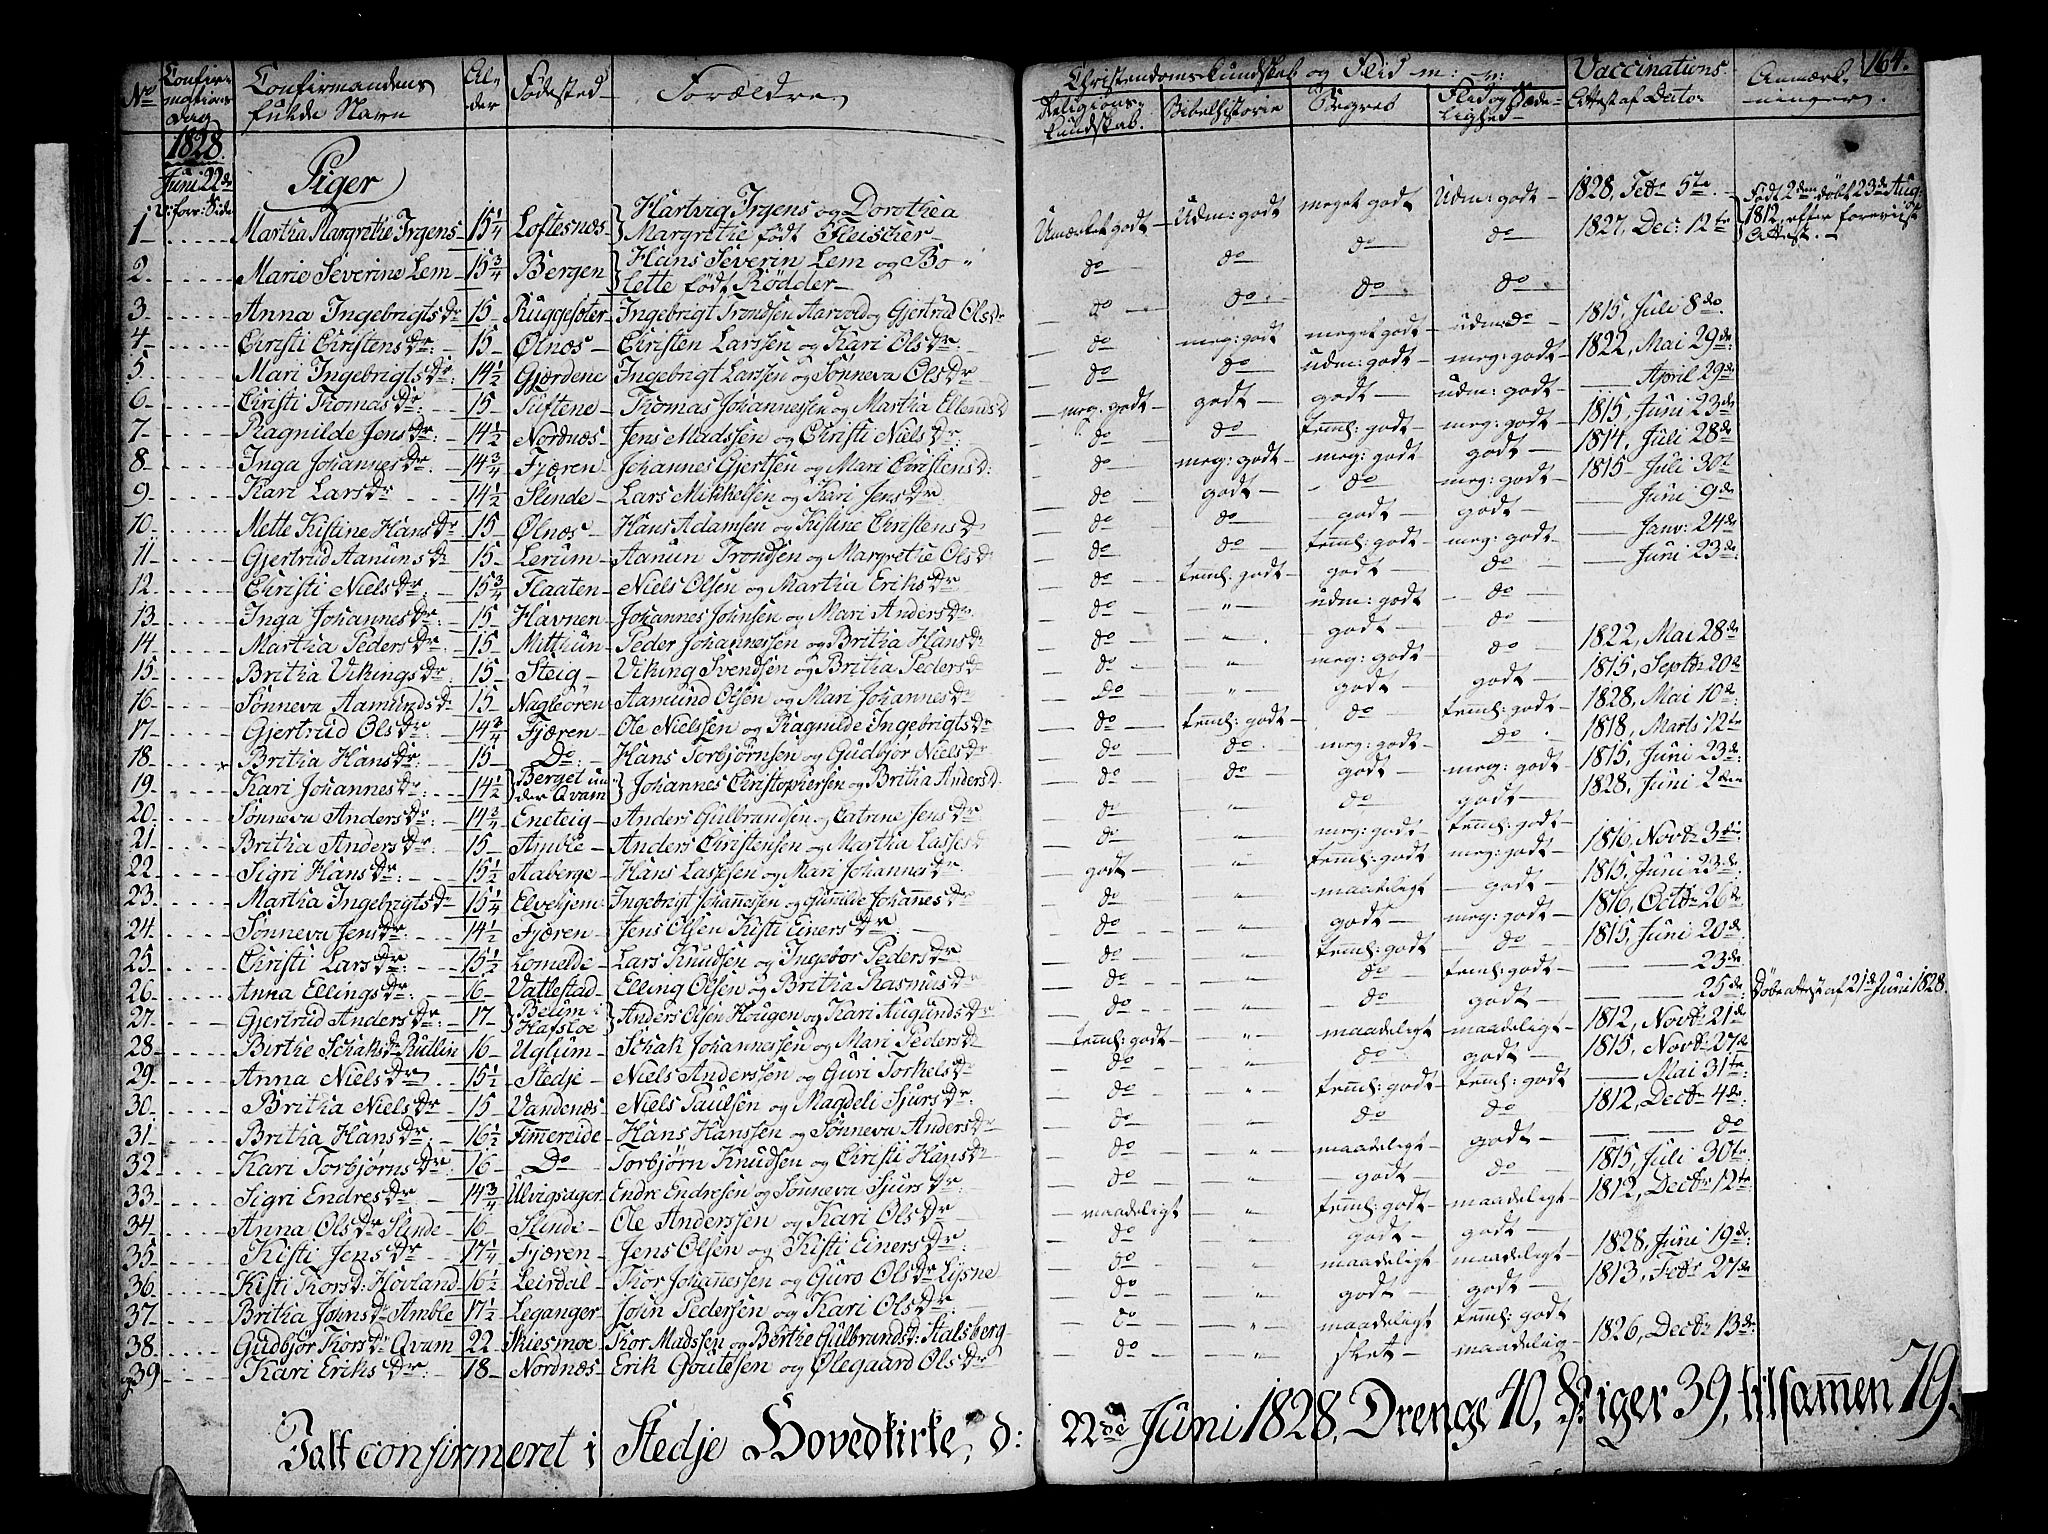 No
Confir-
mations-
dag
Confirmandens
fulde Navn
Al-
der
Fødested
Forældre
Christendoms Kundskab og Flid m: v:
Religions-
kundskab.
Bibelhistorie
Flid og Sæde-
lighed
Vaccinations
Attest af Dato
Anmærk-
ninger.
164.
1828.
Juni 22de
Piger
1 Martha Margrethe Irgens 15 1/4 Loftesnæs Hartvig Irgens og Dorothea
Margrethe født Fleischer Udmærket godt Udm: godt meget godt Udm: godt 1828, Febr 5te Født 2den døbt 23de Aug:
1812, efter foreviist
Attest.
2 Marie Severine Lem 15 3/4 Bergen Hans Severin Lem og Bo
lette født Rødder do do do do 1827, Dec: 12te
3 Anna Ingebrigtsdr 15 Ruggesæter Ingebrigt Trondsen Aarvold og Gjertrud Olsdr do do do do 1815, Juli 8de
4 Christi Christensdr: 15 Ølnæs Christen Larssen og Kari Olsdr do meg: godt meget godt udm: do 1822, Mai 29de
5 Mari Ingebrigtsdr: 14 1/2 Gjærdene Ingebrigt Larssen og Sønneva Olsdr do do udm: godt meg: godt April 29de
6 Christi Thomasdr: 15 Tuftene Thomas Johannessen og Martha Ellendsd meg: godt godt godt udm: godt 1815, Juni 23de
7 Ragnilde Jensdr: 14 1/2 Nordnæs Jens Madssen og Christi Nielsdr: do do teml: godt meg: godt 1814, Juli 28de
8 Inga Johannesdr: 14 3/4 Fjæren Johannes Gjertsen og Mari Christensd: do meg: godt meg: godt godt 1815 Juli 30te
9 Kari Larsdr 14 1/2 Slinde Lars Mikkelsen og Kari Jensdr do godt do meg: godt Juni 9de
10 Mette Kistine Hansdr 15 Ølnæs Hans Adamsen og Kistine Christensd do do godt godt Janv: 24de
11 Gjertrud Aanunsdr 15 Lerum Aanun Trondsen og Margrethe Olsdr do do teml: godt meg: godt Juni 23de
12 Christi Nielsdr: 15 3/4 Flaaten Niels Olsen og Martha Eriksdr do teml: godt godt do
13 Inga Johannesdr: 15 Havnen Johannes Johnsen og Mari Andersdr: do " udm: godt do
14 Martha Pedersdr: 15 Mitthun Peder Johannessen og Britha Hansdr do " godt do 1822, Mai 28de
15 Britha Vikingsdr: 15 Steig Viking Svendsen og Britha Pedersdr do " meg: godt do 1815, Septbr 20de
16 Sønneva Aamundsdr 15 Nagleøren Aamund Olsen og Mari Johannesdr do " godt godt 1828, Mai 10de
17 Gjertrud Olsdr: 14 3/4 Fjæren Ole Nielssen og Ragnilde Ingebrigtsdr do teml: godt do teml: godt 1818, Marts 12te
18 Britha Hansdr: 15 Do: Hans Torbjørnsen og Gudbjør Nielsdr do do meg: godt do 1815, Juni 23de
19 Kari Johannesdr: 14 1/2 Berget un-
der Qvam Johannes Christophersen og Britha Andersd: do do godt meg: godt 1828, Juni 2den
20 Sønneva Andersdr: 14 3/4 Eneteig Anders Gulbrandsen og Catrine Jensdr: do " do godt
21 Britha Andersdr: 15 Amble Anders Christensen og Martha Lassesd do " meg: godt teml: godt 1816, Novbr 3die
22 Sigri Hansdr: 15 1/2 Aaberge Hans Lassesen og Mari Johannesdr: godt " teml: godt meg: godt 1815, Juni 23de
23 Martha Ingebrigtsdr 15 1/4 Elvehjem Ingebrigt Johannessen og Gunilde Johannesdr do " maadeligt godt 1816, Octbr 26de
24 Sønneva Jensdr: 14 1/2 Fjæren Jens Olsen Kisti Einersdr: do " godt meg: godt 1815, Juni 20de
25 Christi Larsdr: 15 1/2 Lomelde Lars Knudsen og Ingebor Pedersdr do " teml: godt do 23de
26 Anna Ellingsdr: 16 Vattestad Elling Olsen og Britha Rasmusdr do " do teml: godt 25de Døbeattest af 21de Juni 1828.
27 Gjertrud Andersdr: 17 Beum i
Hafsloe Anders Olsen Hougen og Kari Augundsdr: do " do godt 1812, Novbr 21de
28 Birthe Schaksdr Kullin 16 Uglum Schak Johannessen og Mari Pedersdr teml: godt " maadeligt maadeligt 1815, Novbr 27de
29 Anna Nielsdr 15 1/2 Stedje Niels Anderssen og Guri Torkelsdr: do " do godt Mai 31te
30 Britha Nielsdr 15 Vandenæs Niels Paulsen og Magdeli Sjursdr: do " teml: godt teml: godt 1812, Decbr 4de
31 Britha Hansdr: 16 1/2 Fimreide Hans Hanssen og Sønneva Andersdr do do do do
32 Kari Torbjørnsdr 16 Do Torbjørn Knudsen og Christi Hansdr do " maadeligt godt 1815, Juli 30te
33 Sigri Endresdr: 14 3/4 Ulvigsager Endre Endresen og Sønneva Sjursdr: do " godt do 1812, Decbr 12te
34 Anna Olsdr Slinde 16 Slinde Ole Anderssen og Kari Olsdr maadeligt " teml: godt maadeligt
35 Kisti Jensdr 17 1/4 Fjæren Jens Olsen og Kisti Einersdr: do " godt godt 1828, Juni 19de
36 Kisti Thorsd: Hovland 16 1/2 Leirdal Thor Johannessen og Guro Olsdr Lysne do " maadeligt maadeligt 1813, Febr 27de
37 Britha Johnsdr Amble 17 1/2 Leganger John Pedersen og Kari Olsdr: do " godt godt
38 Gudbjør Thorsdr Qvam 22 Skiesmoe Thor Madssen og Berthe Gulbrandsd: Stalsberg do " maadeligt teml: godt 1826, Decbr 13de
39 Kari Eriksdr: 18 Nordnæs Erik Goutesen og Ølegaard Olsdr do " slet maadelig
I alt confirmeret i Stedje Hovedkirke, d: 22de Juni 1828, Drenge 40, Piger 39, tilsammen 79.